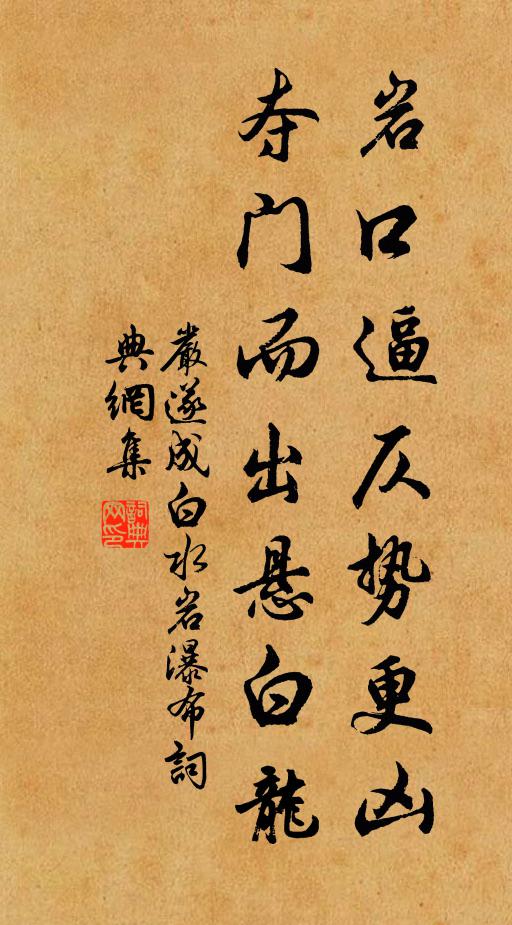 岩口逼仄势更凶
夺门而出悬白龙
嚴遂成白水岩瀑布詞
典網集
詞典网印